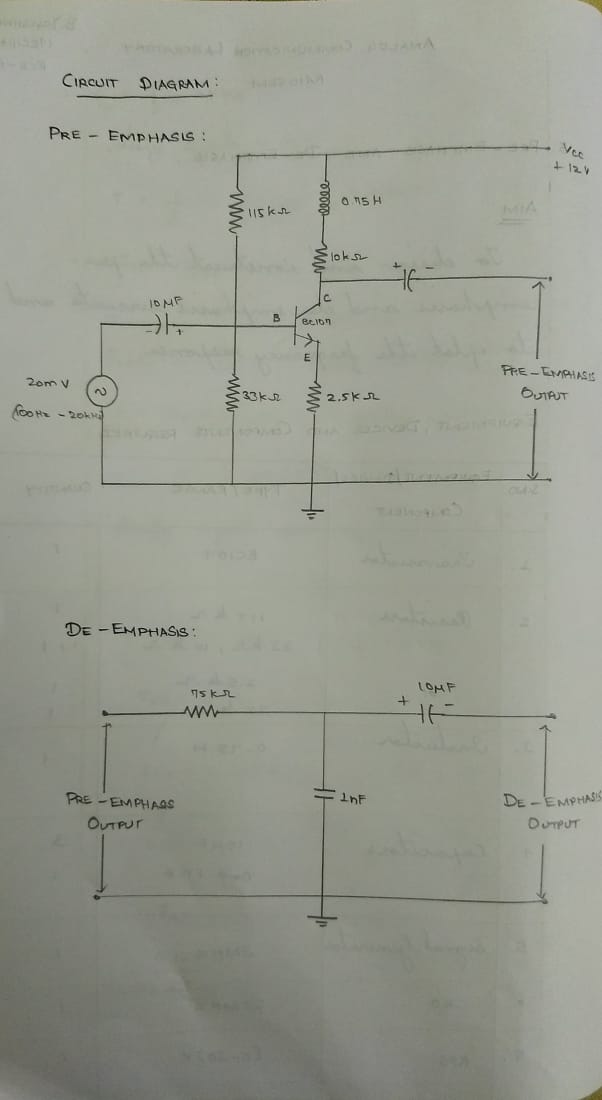 CIRCUIT DIAGRAM:
PRE - EMPHASIS:
VCC
+ 12V
115kΩ
0.75H
10kΩ
+ -
C
10MF
- +
B
BC107
E
20mV
~
(100Hz - 20kHz)
33kΩ
2.5kΩ
PRE - EMPHASIS
OUTPUT
DE - EMPHASIS:
75kΩ
10MF
+ -
PRE - EMPHASIS
OUTPUT
1nF
DE - EMPHASIS
OUTPUT